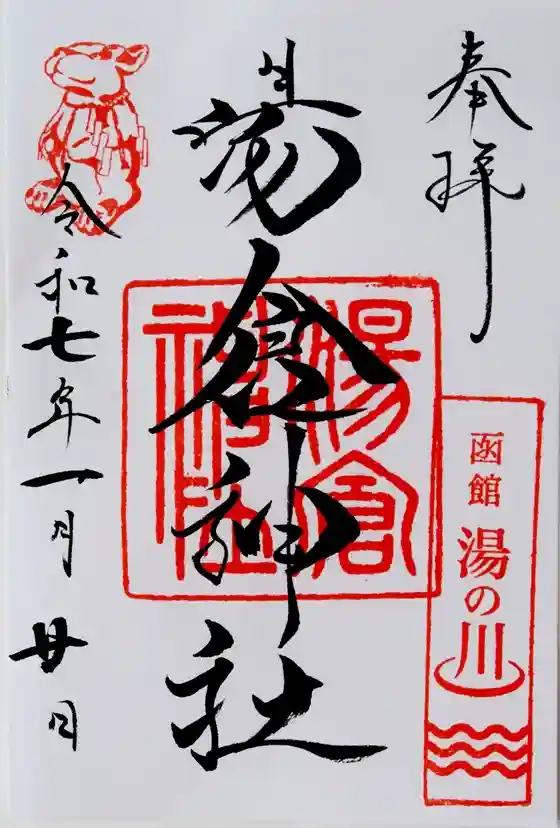 奉拝
函館
湯の川
湯倉神社
湯倉
神社
令和七年一月廿日